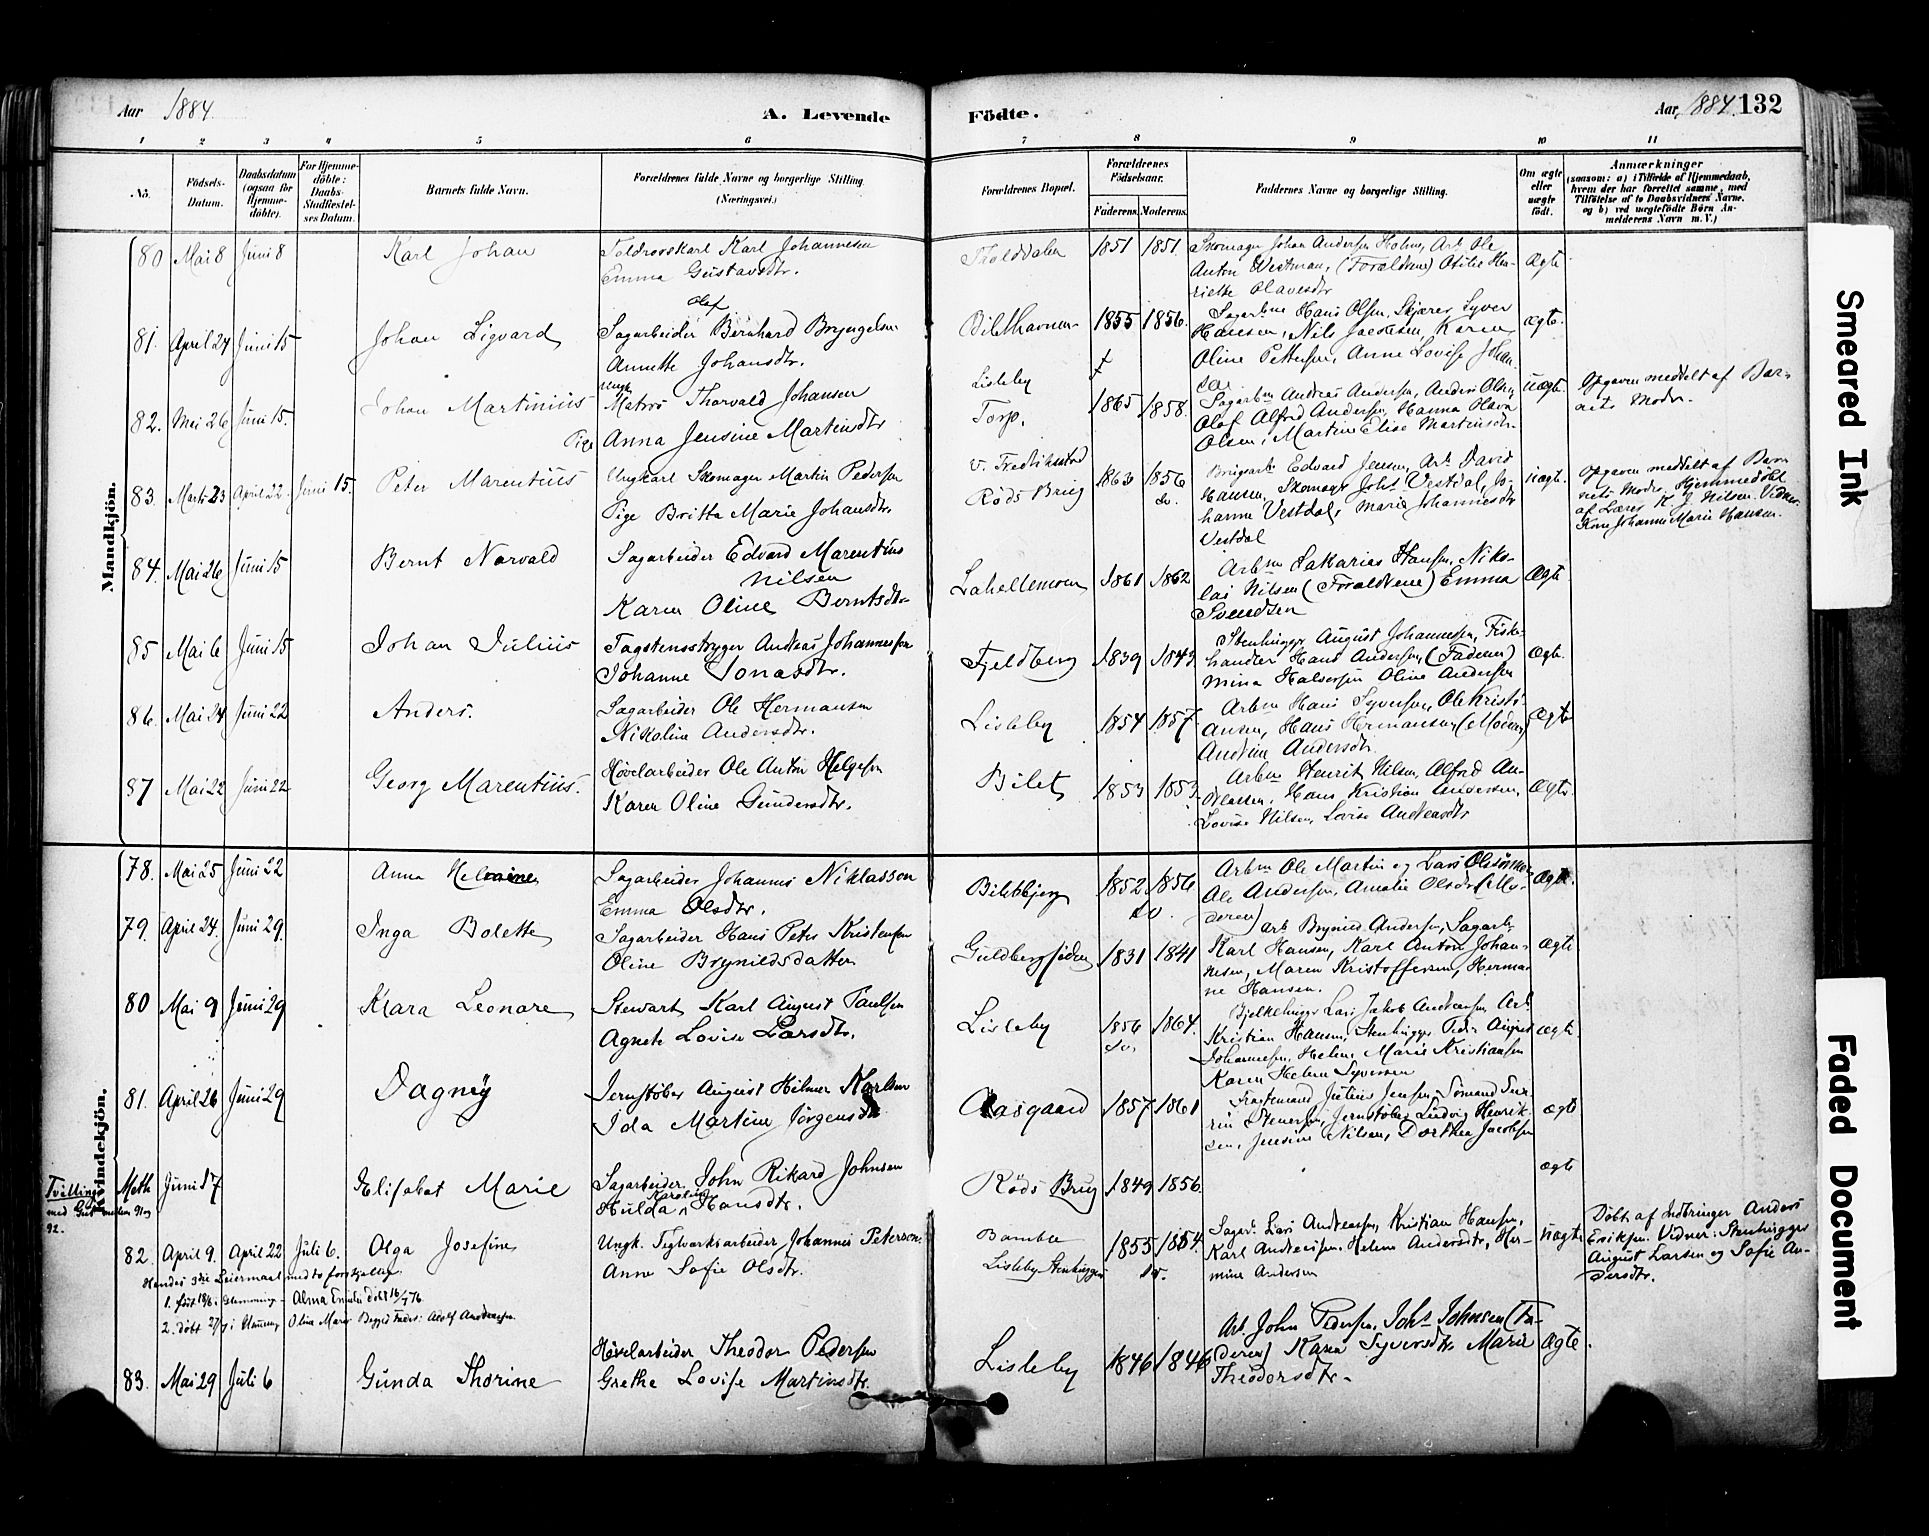 Aar 1884.
A. Levende
Födte.
Aar 1884. 132
1 2 3 4 5 6 7 8 9 10 11
No.
Födsels-Datum.
Daabsdatum (ogsaa for Hjemme-döbte).
For Hjemme-döbte: Daabs-Stadfæstel-ses Datum.
Barnets fulde Navn.
Forældrenes fulde Navne og borgerlige Stilling. (Næringsvei.)
Forældrenes Bopæl.
Forældrenes Födselsaar.
Faderens. Moderens.
Faddernes Navne og borgerlige Stilling.
Om ægte eller uægte födt.
Anmærkninger
(saasom: a) i Tilfælde af Hjemmedaab, hvem der har forrettet samme, med Tilföielse af to Daabsvidners Navne. og b) ved uægtefödte Börn An-melderens Navn m. V.)
Mandkjön.
80 Mai 8 Juni 8 Karl Johan
Toldrorskarl Karl Johannesen
Emma Gustavsdtr.
1851 1851.
Skomager Johan Andersen Holm, Arb. Ole
Anton Westman, (Forældrene) Otilie Hen-
riette Olavesdtr
Ægte
81. April 27 Juni 15 Johan Sigvard
Olaf
Sagarbeider Bernhard Bryngelsen
Annette Johansdtr.
1855 1856.
Sagarbne Hans Olsen, Skjærer Syver
Hansen, Nils Jacobsen, Karen
Oline Pettersen, Anne Lovise Johan-
sen
Ægte.
82. Mai 26 Juni 15. Johan Martinius
Ungk
Matros Thorvald Johansen
Pige Anna Jensine Martinsdtr
Lisleby
Torp.
1865 1858.
Sagarbn Andreas Andersen, Anders Olsen,
Olof Alfred Andersen, Hanna Olava
Olsen, Martine Elise Martinsdtr.
uægte.
Opgaven meddelt af Bar-
nets Moder.
83. Marts 23 April 22. Juni 15. Peter Marentius
Ungkarl Skomager Martin Pedersen
Pige Britta Marie Johansdtr.
v. Fredrikstad
Røds Brug
1863 1856
Brugsarb. Edvard Jensen, Arb. David
Hansen, Skomager Johs Vestdal, Jo-
hanne Vestdal, Marie Johannesdtr
Vestdal
uægte.
Opgaven meddelt af Bar-
nets Moder. Hjemmedöbt
af Lærer K. J. Nilsen. Vidner
Kone Johanne Marie Hansen.
84. Mai 26 Juni 15 Bernt Norvald
Sagarbeider Edvard Marentius
Nilsen
Karen Oline Berntsdtr
Lahellemoen
1861 1862
Arbne Sakarias Hansen, Niko-
lai Nilsen (Forældrene) Emma
Svendsen
Ægte
85 Mai 6 Juni 15 Johan Julius
Tagstensstryger Andreas Johannesen
Johanne Jonasdtr.
Fjeldberg
1839 1843.
Stenhugger August Johannesen, Fiske-
handler Hans Andersen, (Faderen)
Mina Halvorsen Oline Andersen
Ægte.
86. Mai 24 Juni 22 Anders.
Sagarbeider Ole Hermansen
Nikoline Andersdtr.
Lisleby
1854 1857.
Arbne Hans Syversen, Ole Kristi-
ansen, Hans Hermansen, (Moderen)
Andrine Andersdtr.
Ægte
87 Mai 22 Juni 22 Georg Marentius.
Høvelarbeider Ole Anton Helgesen
Karen Oline Gundersdtr.
Bilet
1853 1853.
Arbne Henrik Nilsen, Alfred An-
dreasen, Hans Kristian Andersen,
Lovise Nilsen, Lovise Andreasdtr
Ægte.
Kvindekjön.
78. Mai 25 Juni 22 Anna Helmine
Sagarbeider Johannes Niklasson
Emma Olsdtr.
Biletsbjerg
1852 1856
Arbne Ole Martin og Lars
Ole Andersen, Amalie Olsdtr (Mo-
deren)
Ægte.
79. April 24. Juni 29. Inga Bolette
Sagarbeider Hans Peter Kristensen
Oline Brynildsdatter
Guldbergsiden
1831 1841
Arb. Brynild Andersen, Sagarb.
Karl Hansen, Karl Anton Johan-
nesen, Maren Kristoffersen, Herma-
ne Hansen.
Ægte
80 Mai 9 Juni 29 Klara Leonore
Stewart Karl August Paulsen
Agnete Lovise Larsdtr.
Lisleby
1856 1864.
Bjelkehugger Lars Jakob Andreasen, Arb.
Kristian Hansen, Stenhugger Peder August
Johannesen, Helene Marie Kristiansen
Karen Helene Syversen
ægte
81. April 26 Juni 29 Dagny
Jernstøber August Hilmer Karlsen
Ida Martine Jörgensdtr
Aasgaard
1857 1861
Fragtemand Julius Jensen, Sömand Seve-
rin Stenersen, Jernstøber Ludvig Henrik-
sen, Jensine Nilsen, Dorthea Jacobsen
ægte
Tvilling
92.
Meth Juni 17 Elisabet Marie
Sagarbeider John Rikard Johnsen
Karoline
Hulda Hansdtr.
Røds Brug
1849 1856.
ægte
82. April 9. April 22 Juli 6. Olga Josefine
Ungk. Teglværksarbeider Johannes Peterson
Anne Sofie Olsdtr.
Bamble
Lisleby Stenhuggeri
1855 1854.
Sagarb. Lars Andreasen, Kristian Hansen,
Karl Andreassen, Helene Andersdtr, Her-
mine Andersen
uægte
Døbt af Indbringer Anders
Eriksen. Vidner: Stenhugger
August Larsen og Sofie An-
dersdtr.
Hendes 3die Leiermaal med to forskjellige.
83. Mai 29 Juli 6 Gunda Thorine
Høvelarbeider Theodor Pedersen
Grethe Lovise Martinsdtr.
Lisleby
1846 1846
Arb. John Pedersen, Johs Johnsen (Fa-
deren) Karen Syversdtr. Marie
Theodorsdtr.
Ægte
Smeared Ink
Faded Document